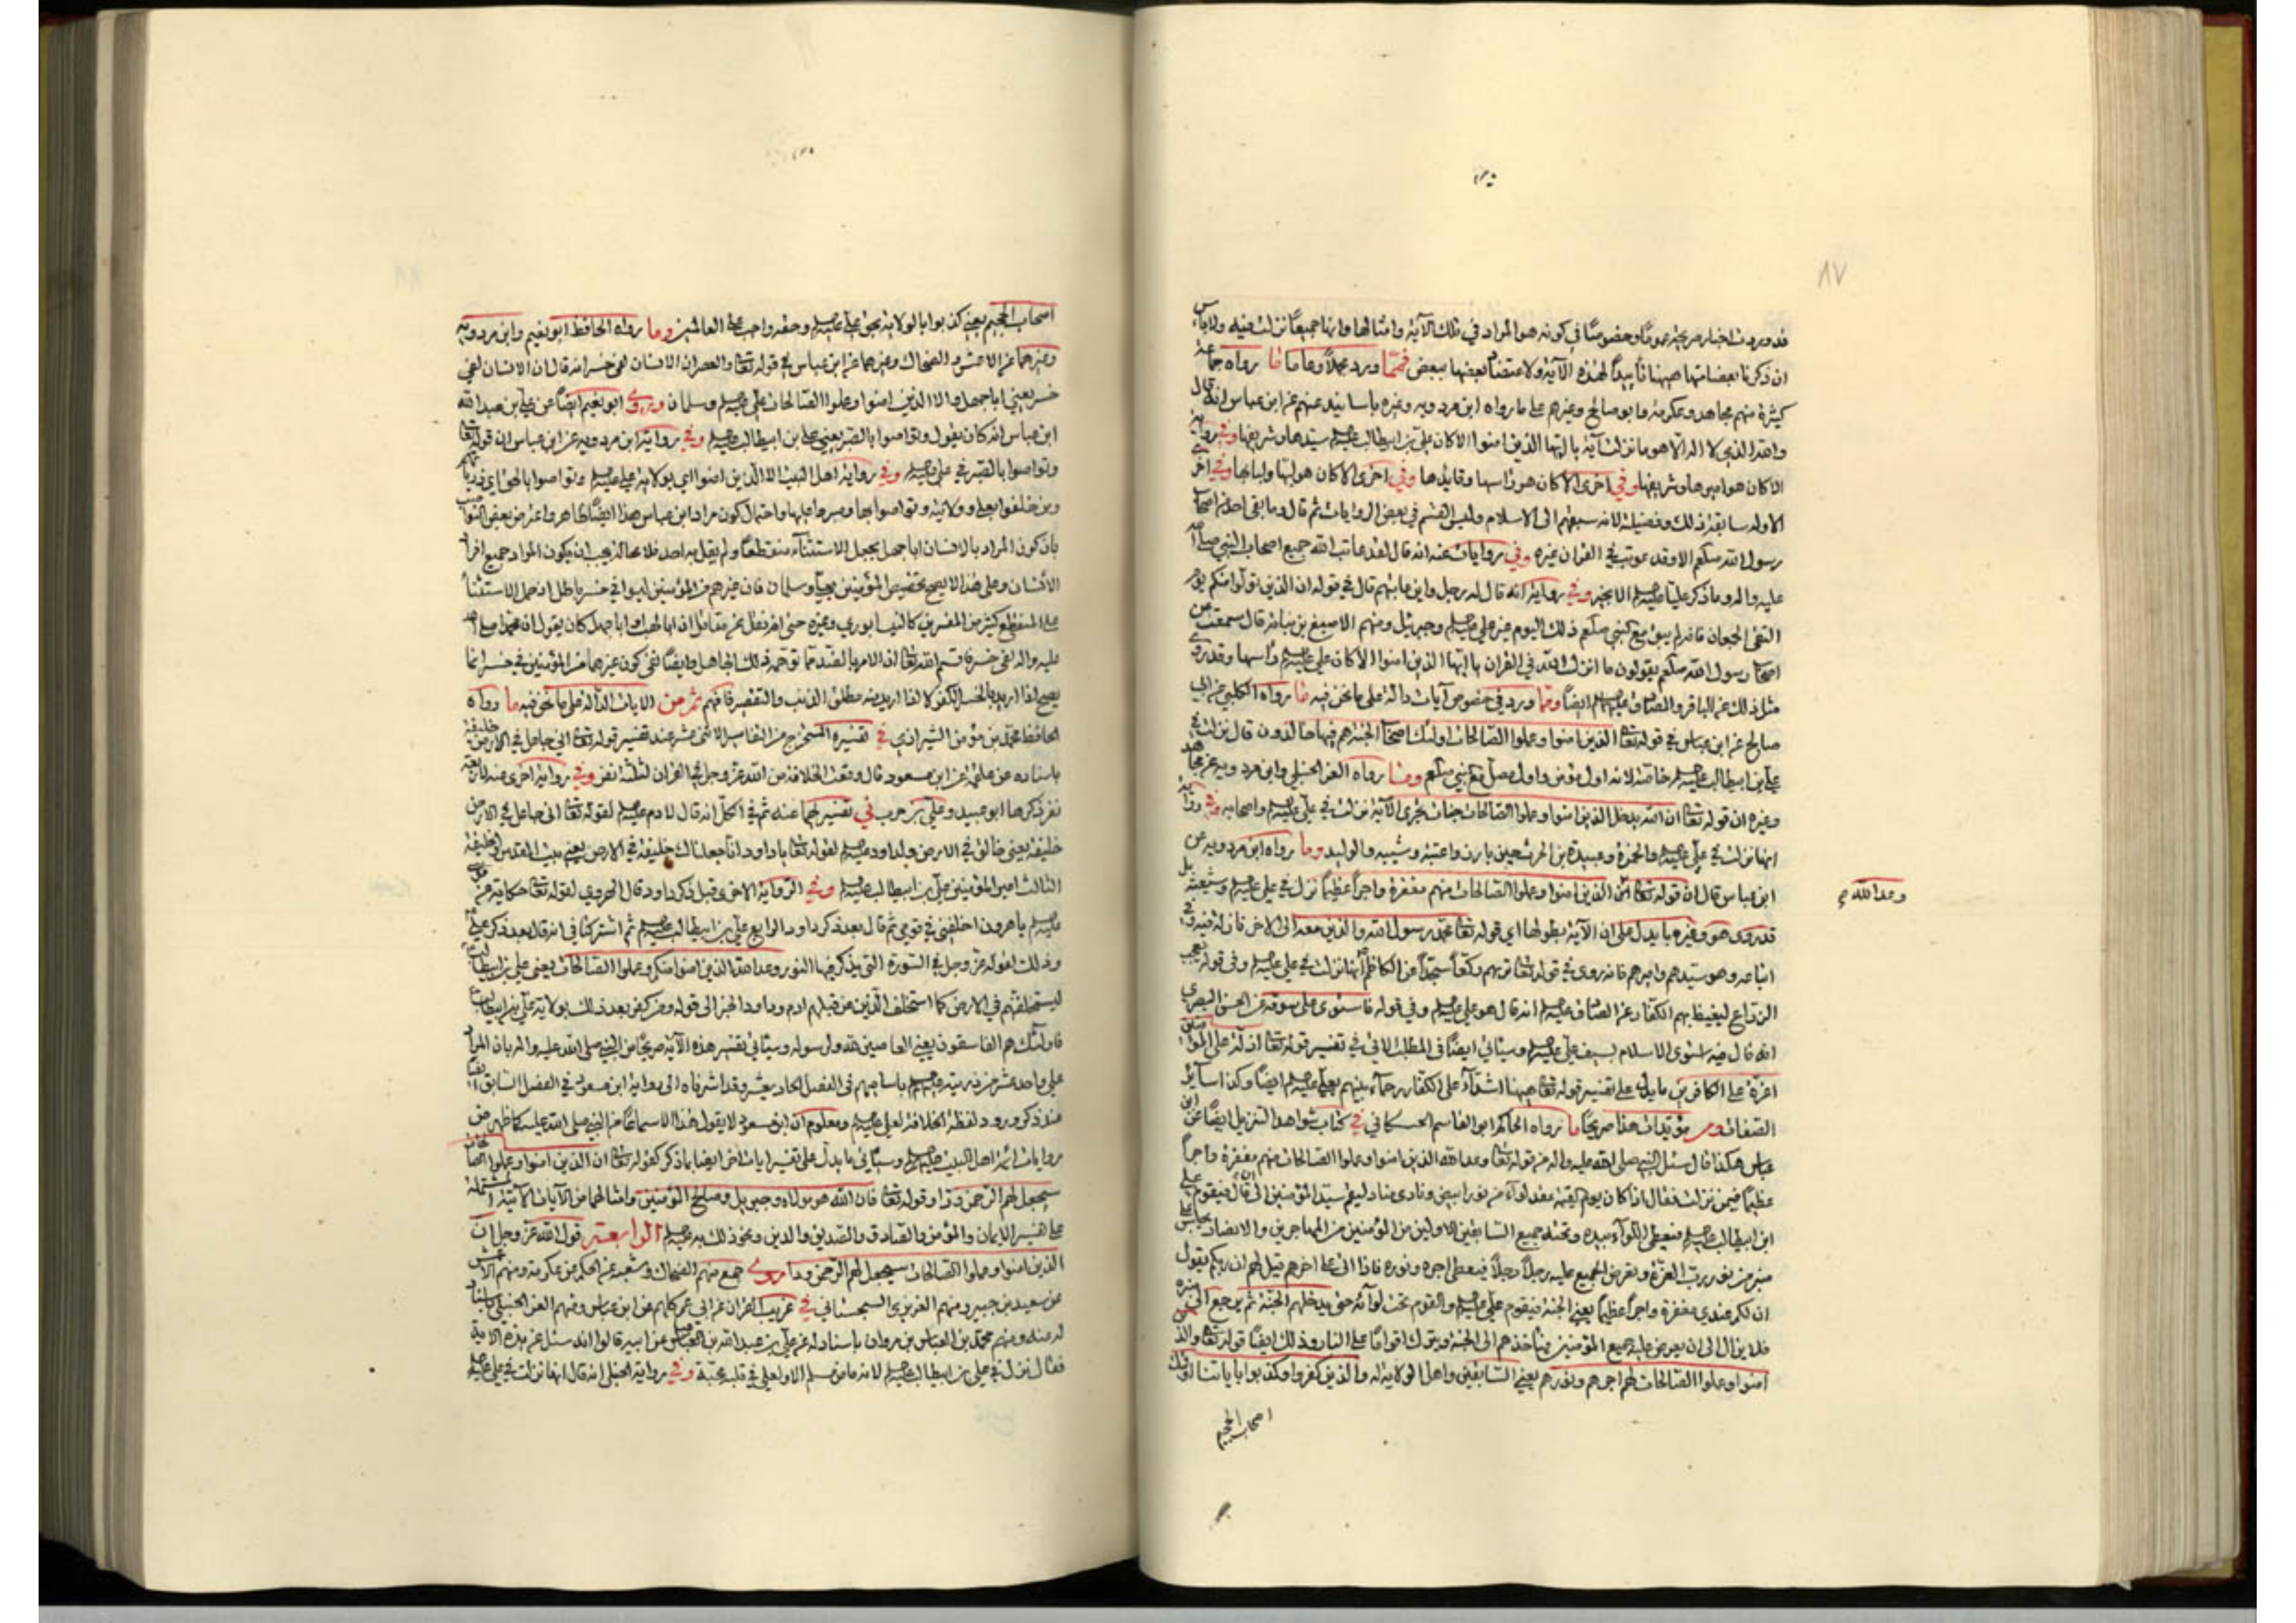 ٨٧
قد وردت اخبار صريحة عموما وخصوصا في كونه هو المراد في تلك الآية وامثالها وانها جميعا نزلت فيه ولا بأس
ان ذكرنا بعضا منها ههنا تأييدا لهذه الآية ولاعتضاد بعضها ببعض فمما ورد مجملا وعاما ما رواه جماعة
كثيرة منهم مجاهد وعكرمة وابو صالح وغيرهم على ما رواه ابن مردويه وغيره باسانيد عنهم عن ابن عباس انه قال
والله الذي لا اله الا هو ما نزلت آية يا ايها الذين امنوا الا كان علي بن ابيطالب سيدها وشريفها وفي رواية
الا كان هو اميرها وشريفها وفي اخرى الا كان هو رأسها وقايدها وفي اخرى الا كان هو لبها ولبابها وفي اخرى
الاوله سابقة ذلك وفضيلته لانه سبقهم الى الاسلام وليس القسم في بعض الروايات ثم قال وما بقى احد من اصحاب
رسول الله صلعم الا وقد عوتب في القران غيره وفي روايات عنه انه قال لقد عاتب الله جميع اصحاب النبي صلى الله
عليه واله وما ذكر عليا الا بخير وفي رواية انه قال له رجل واين عاتبهم قال في قوله ان الذين تولوا منكم يوم
التقى الجمعان فانه لم يبق مع النبي صلعم ذلك اليوم غير علي وجبرئيل ومنهم الاصبغ بن نباتة قال سمعت من
اصحاب رسول الله صلعم يقولون ما انزل الله في القران يا ايها الذين امنوا الا كان علي رأسها وقد روى
مثل ذلك عن الباقر والصادق ايضا ومما ورد في خصوص آيات دالة على ما نحن فيه ما رواه الكلبي عن ابي
صالح عن ابن عباس في قوله تعالى الذين امنوا وعملوا الصالحات اولئك اصحاب الجنة هم فيها خالدون قال نزلت في
علي بن ابيطالب خاصة لانه اول مؤمن واول مصل مع النبي صلعم ومنها رواه العز الحنبلي وابن مردويه عن مجاهد
وغيره ان قوله تعالى ان الله يدخل الذين امنوا وعملوا الصالحات جنات تجرى الآية نزلت في علي واصحابه وفي رواية
انها نزلت في علي والحمزة وعبيدة بن الحرث حين بارزوا عتبة وشيبه والوليد وما رواه ابن مردويه عن
ابن عباس قال ان قوله تعالى الذين امنوا وعملوا الصالحات منهم مغفرة واجرا عظيما نزل في علي وشيعته بل
وعد الله
قد روى هو وغيره ما يدل على ان الآية بطولها اي قوله تعالى محمد رسول الله والذين معه الى الاخر نازلة فيه وفي
اتباعه وهو سيدهم واميرهم فانه روى في قوله تعالى تريهم ركعا سجدا عن الكاظم انها نزلت في علي وفي قوله يعجب
الزراع ليغيظ بهم الكفار عن الصادق انه قال هو علي وفي قوله فاستوى على سوقه عن الحسن البصري
انه قال استوى الاسلام بسيف علي وسيأتي ايضا في المطلب الاتي في تفسير قوله تعالى اذلة على المؤمنين
اعزة على الكافرين ما يدل على تفسير قوله تعالى ههنا اشداء على الكفار رحماء بينهم بعلي ايضا وكذا ساير
الصفات ومن مؤيدات هذا صريحا ما رواه الحاكم ابو القاسم الحسكاني في كتاب شواهد التنزيل ايضا عن ابن
عباس هكذا قال سئل النبي صلى الله عليه واله عن قوله تعالى وعد الله الذين امنوا وعملوا الصالحات منهم مغفرة واجرا
عظيما فيمن نزلت فقال اذا كان يوم القيمة عقد لواء من نور ابيض ونادى مناد ليقم سيد المؤمنين الى ان قال فيقوم علي
ابن ابيطالب فيعطى اللواء بيده وتحته جميع السابقين الاولين من المؤمنين من المهاجرين والانصار يجلس على
منبر من نور رب العزة ويعرض الجميع عليه رجلا رجلا فيعطى اجره ونوره فاذا اتى على اخرهم قيل لهم ان ربكم يقول
ان لكم عندي مغفرة واجرا عظيما يعني الجنة فيقوم علي والقوم تحت لوائه حتى يدخلهم الجنة ثم يرجع الى منبره
فلا يزال الى ان يعرض عليه جميع المؤمنين فيأخذهم الى الجنة ويترك اقواما على النار وذلك ايضا قوله تعالى والذين
امنوا وعملوا الصالحات لهم اجرهم ونورهم يعني السابقين واهل الولاية له والذين كفروا وكذبوا باياتنا اولئك
اصحاب الجحيم
اصحاب الجحيم يعني كذبوا بالولاية بحق علي وحقه واجب على العالمين وما رواه الحافظ ابو نعيم وابن مردويه
وغيرهما عن الاعمش والضحاك وغيرهما عن ابن عباس في قوله تعالى والعصر ان الانسان لفي خسر انه قال ان الانسان لفي
خسر يعني ابا جهل الا الذين امنوا وعملوا الصالحات علي وسلمان وروى ابو نعيم ايضا عن علي بن عبد الله
ابن عباس انه كان يقول وتواصوا بالصبر يعني علي بن ابيطالب وفي رواية ابن مردويه عن ابن عباس ان قوله تعالى
وتواصوا بالصبر في علي وفي رواية اهل البيت الا الذين امنوا اي بولاية علي وتواصوا بالحق اي ذرياتهم
ومن خلفوا بعلي وولايته وتواصوا بها وصبروا عليها واحتمال كون مراد ابن عباس هذا ايضا ظاهر واعترض بعض النواصب
بان كون المراد بالانسان ابا جهل يجعل الاستثناء منقطعا ولم يقل به احد فلا محالة يجب ان يكون المراد جميع افراد
الانسان وعلى هذا لا يصح تخصيص المؤمنين بعلي وسلمان فان غيرهم من المؤمنين ليسوا في خسر باطل اذ حمل الاستثناء
على المنقطع كثير من المفسرين كالنيسابوري وغيره حتى انه نقل عن مقاتل ان ابا لهب او ابا جهل كان يقول ان محمدا صلى الله
عليه واله لفي خسر فاقسم الله تعالى ان الامر بالضد مما توهمه ذلك الجاهل وايضا نفى كون غيرهما من المؤمنين في خسر انما
يصح اذا اريد بالخسر الكفر لا اذا اريد منه مطلق الذنب والتقصير فافهم ثم من الايات الدالة على ما نحن فيه ما رواه
الحافظ محمد بن مؤمن الشيرازي في تفسيره المستخرج من التفاسير الاثنى عشر عند تفسير قوله تعالى اني جاعل في الارض خليفة
باسناده عن علقمة عن ابن مسعود قال وقعت الخلافة من الله عز وجل في القران لثلثة نفر وفي رواية اخرى عنه لاربعة
نفر ذكرها ابو عبيد وعلي بن حرب في تفسيرهما عنه ثم في الكل انه قال لادم لقوله تعالى اني جاعل في الارض
خليفة يعني خالق في الارض ولداود لقوله تعالى يا داود انا جعلناك خليفة في الارض يعني بيت المقدس والخليفة
الثالث امير المؤمنين علي بن ابيطالب وفي الرواية الاخرى قبل ذكر داود قال لهرون لقوله تعالى حكاية عن موسى
يا هرون اخلفني في قومي ثم قال بعد ذكر داود الرابع علي بن ابيطالب ثم اشتركتا في انه قال بعد ذكر علي
وذلك لقوله عز وجل في السورة التي يذكر فيها النور وعد الله الذين امنوا منكم وعملوا الصالحات يعني علي بن ابيطالب
ليستخلفنهم في الارض كما استخلف الذين من قبلهم ادم وداود الخبر الى قوله ومن كفر بعد ذلك بولاية علي بن ابيطالب
فاولئك هم الفاسقون يعني العاصين لله ولرسوله وسيأتي تفسير هذه الآية صريحا من النبي صلى الله عليه واله بان المراد
علي واحد عشر من ذريته باساميهم في الفصل الحاديعشر وقد اشرنا الى رواية ابن مسعود في الفصل السابق ايضا
عند ذكر ورود لفظة الخلافة لعلي ومعلوم ان ابن مسعود لا يقول هذا الا سماعا من النبي صلى الله عليه كما ظهر من
روايات ائمة اهل البيت وسيأتي ما يدل على تفسير ايات اخر ايضا بما ذكر كقوله تعالى ان الذين امنوا وعملوا الصالحات
سيجعل لهم الرحمن ودا وقوله تعالى فان الله هو مولاه وجبريل وصالح المؤمنين وامثالهما من الآيات الآتية المشتملة
على تفسير الايمان والمؤمن والصادق والصديق والدين ونحو ذلك به الرابعة قول الله عز وجل ان
الذين امنوا وعملوا الصالحات سيجعل لهم الرحمن ودا روى جمع منهم الضحاك وشعبة عن الحكم عن عكرمة ومنهم الاعمش
عن سعيد بن جبير ومنهم العزيزى السجستاني في غريب القران عن ابي عمر كلهم عن ابن عباس ومنهم العز الحنبلي باسناد
له عنه ومنهم محمد بن العباس بن مروان باسناد له عن علي بن عبد الله بن العباس عن ابيه قالوا انه سئل عن هذه الاية
فقال نزلت في علي بن ابيطالب لانه ما من مسلم الا ولعلي في قلبه محبة وفي رواية الحنبلي انه قال انها نزلت في علي